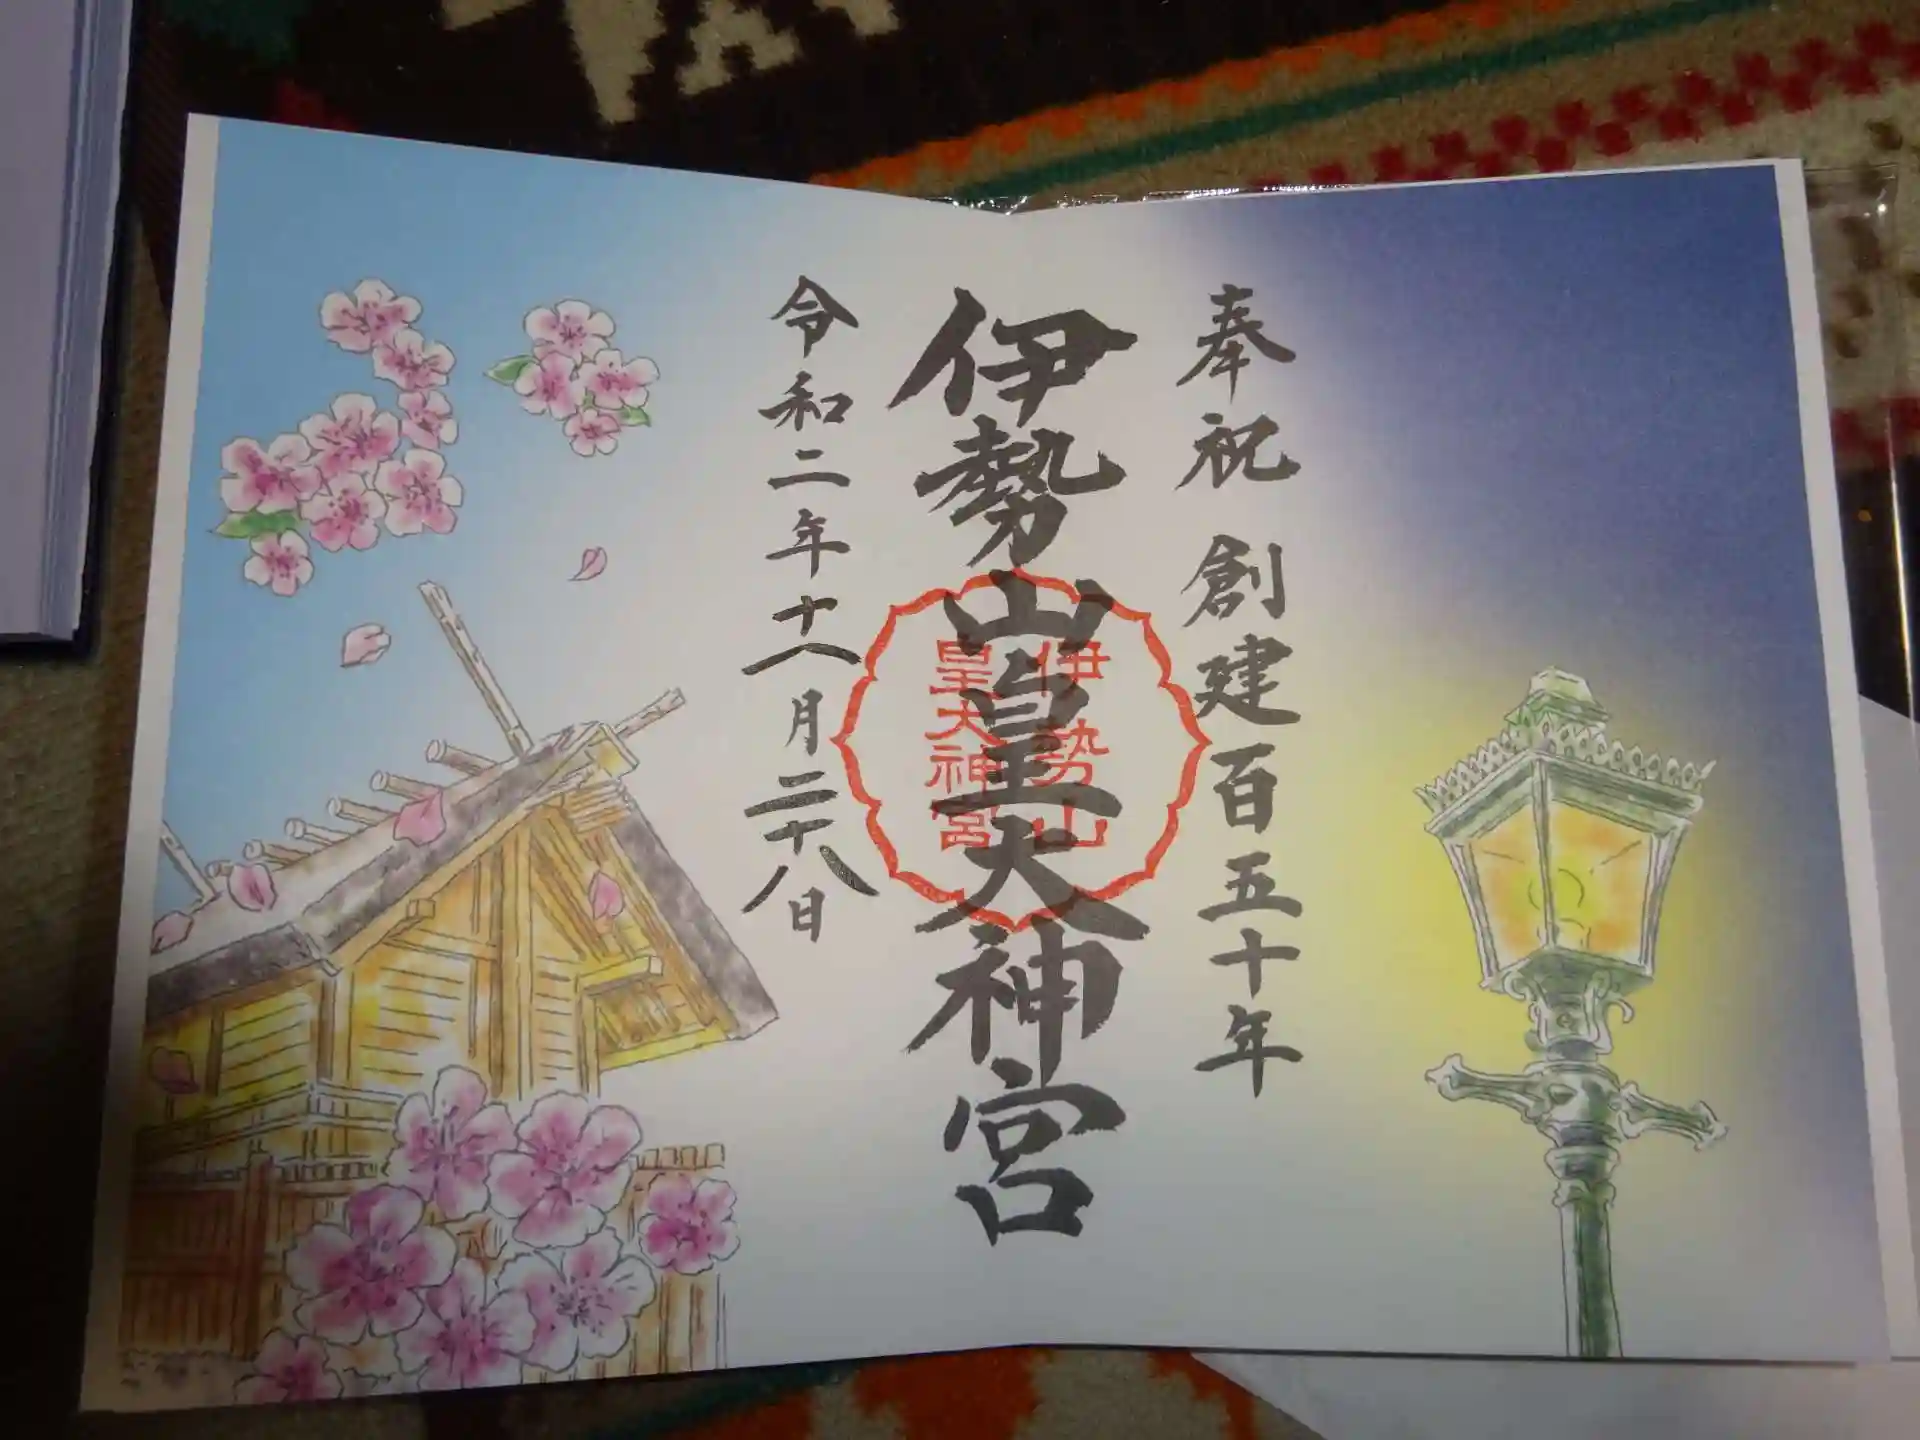 奉祝 創建百五十年
伊勢山皇大神宮
令和二年十一月二十八日
伊勢山
皇大神宮